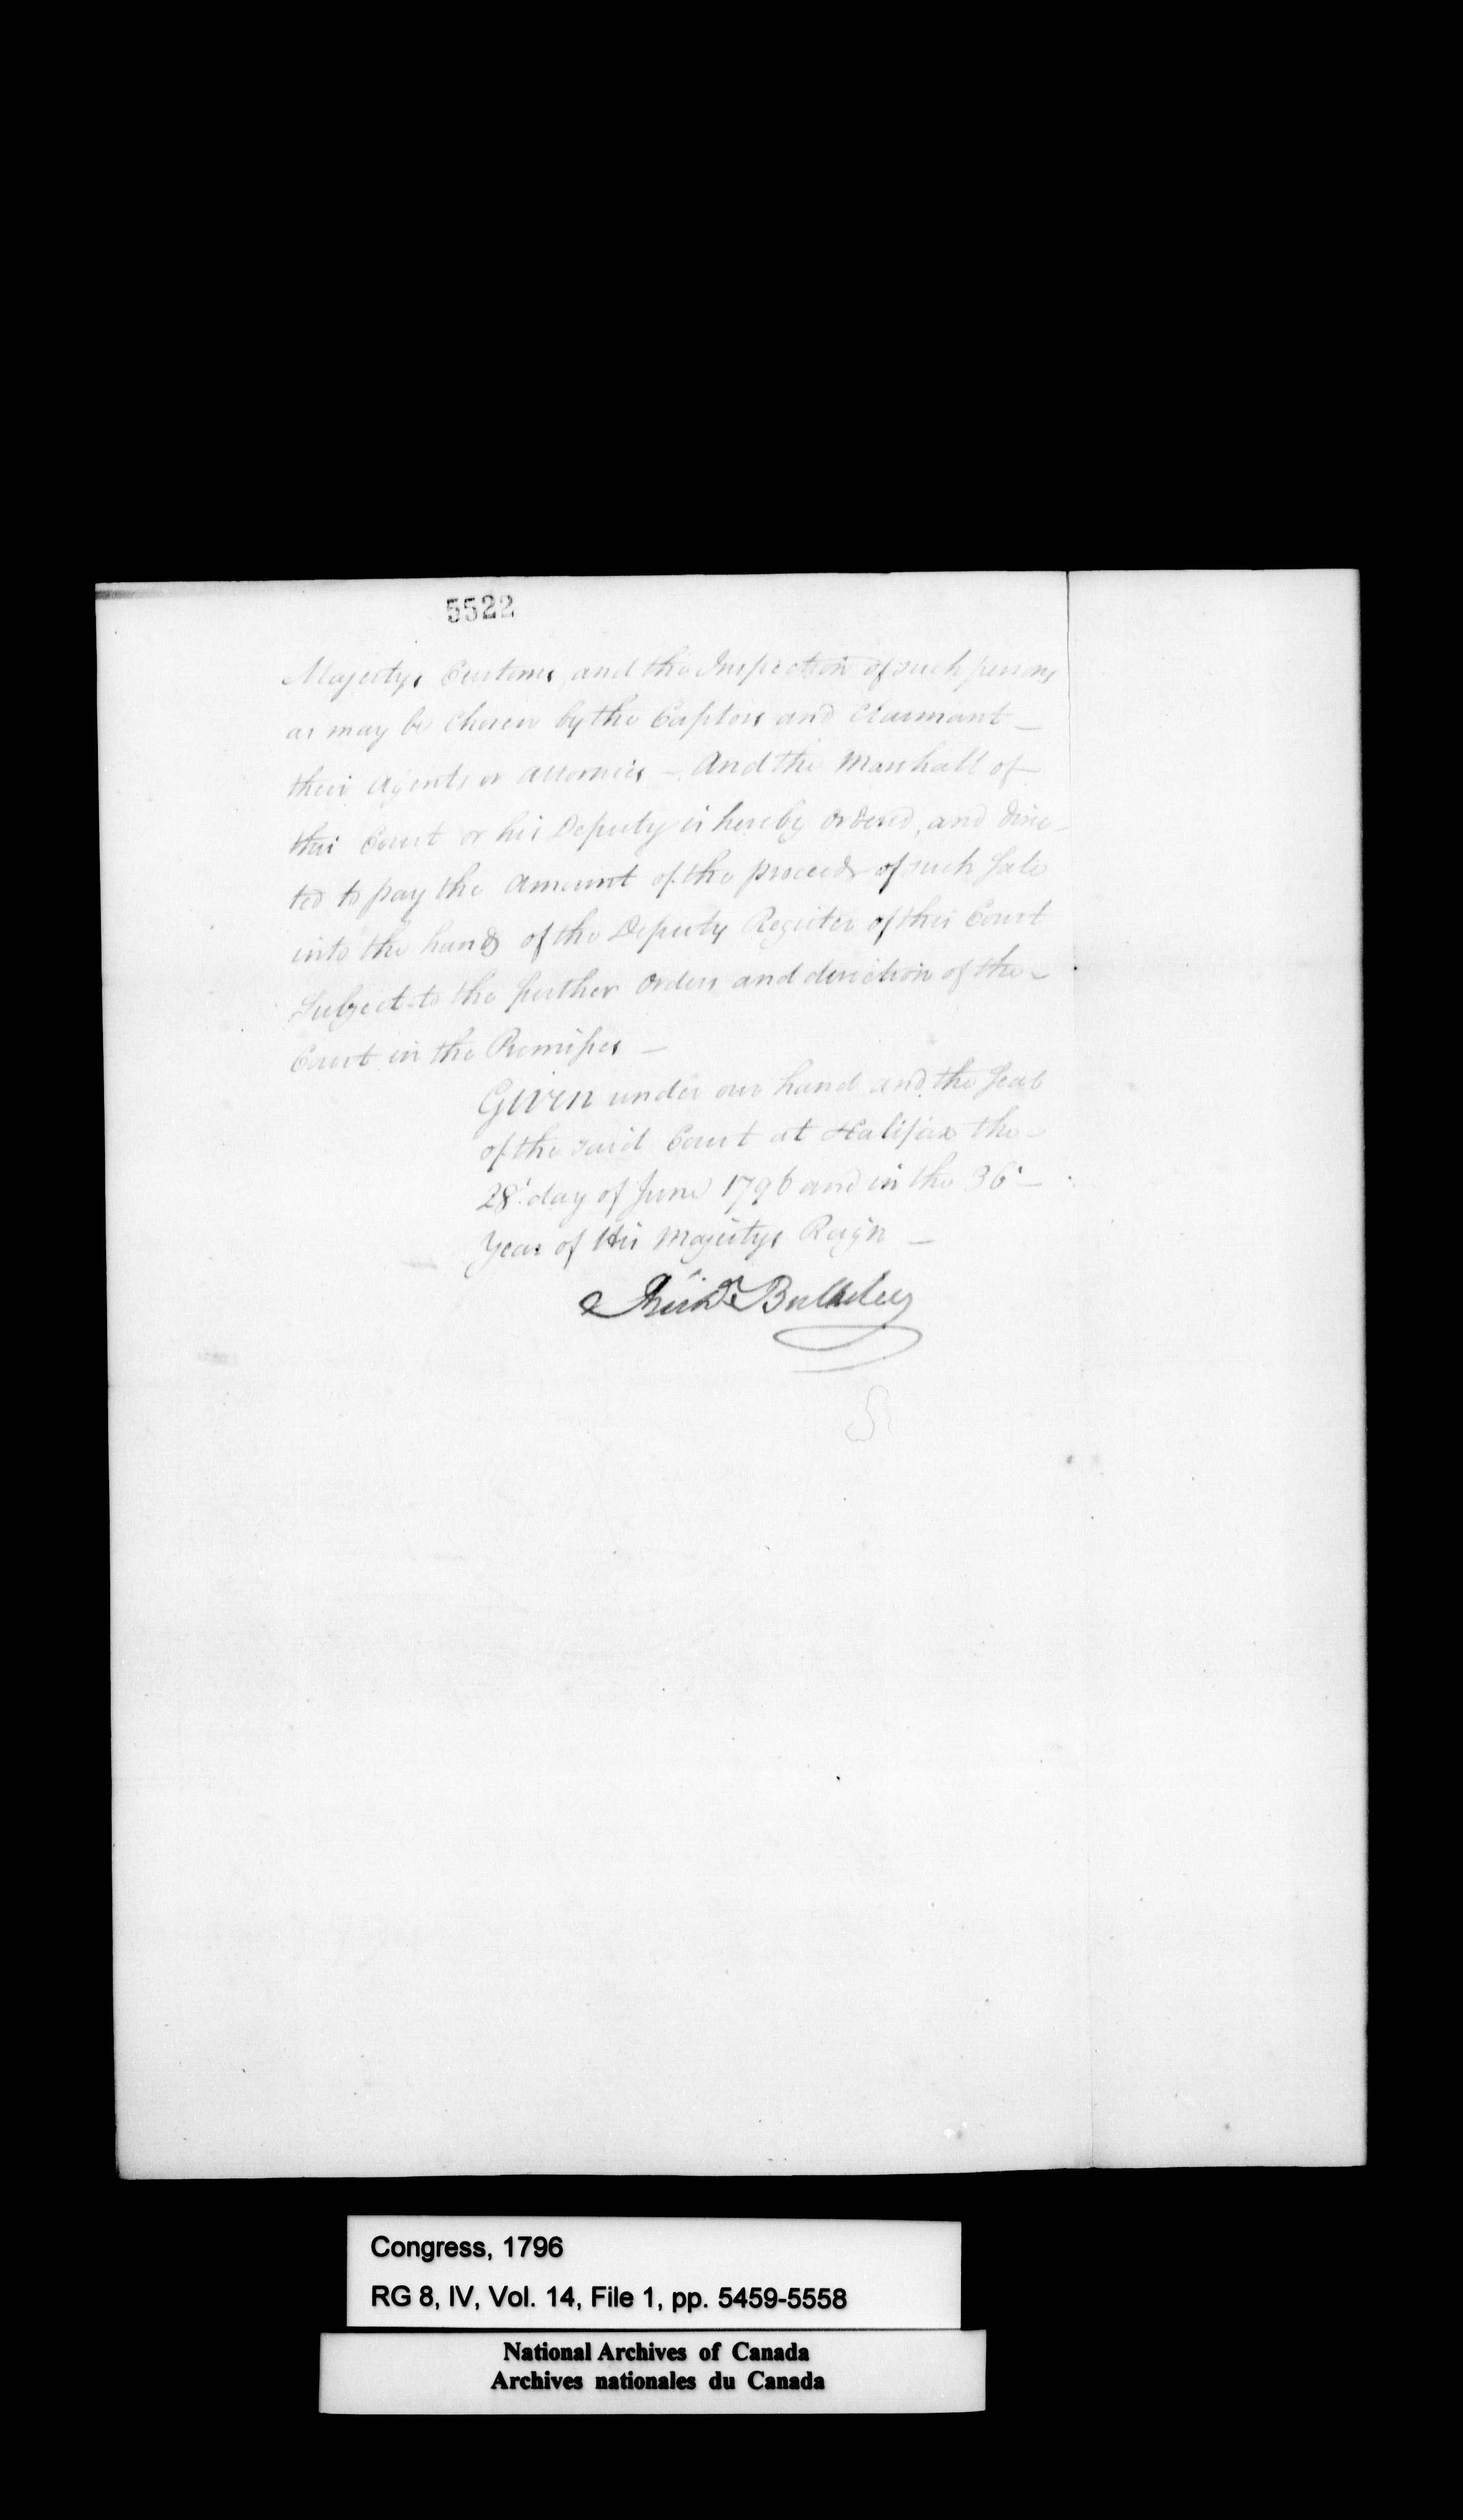 5522
Majestys Customs, and the Inspection of such persons
as may be chosen by the Captors and Claimant —
their Agents or Attornies — And the Marshall of —
this Court or his Deputy is hereby ordered, and direc-
ted to pay the amount of the proceeds of such Sale
into the hands of the Deputy Register of this Court
Subject to the further Orders and direction of the —
Court in the Premises —
Given under our hand and the Seal
of the said Court at Halifax the —
28th day of June 1796 and in the 36th —
Year of His Majestys Reign —
Richd. Bulkeley
Congress, 1796
RG 8, IV, Vol. 14, File 1, pp. 5459-5558
National Archives of Canada
Archives nationales du Canada